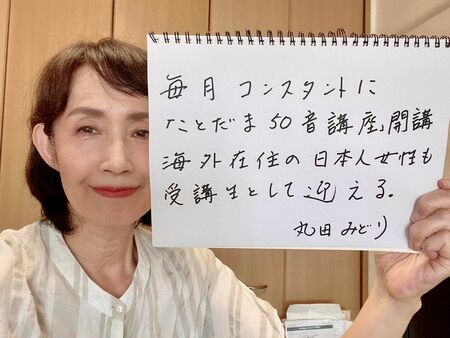 毎月 コンスタントに
ことだま50音講座、開講
海外在住の日本人女性も
受講生として迎える。
丸田みどり